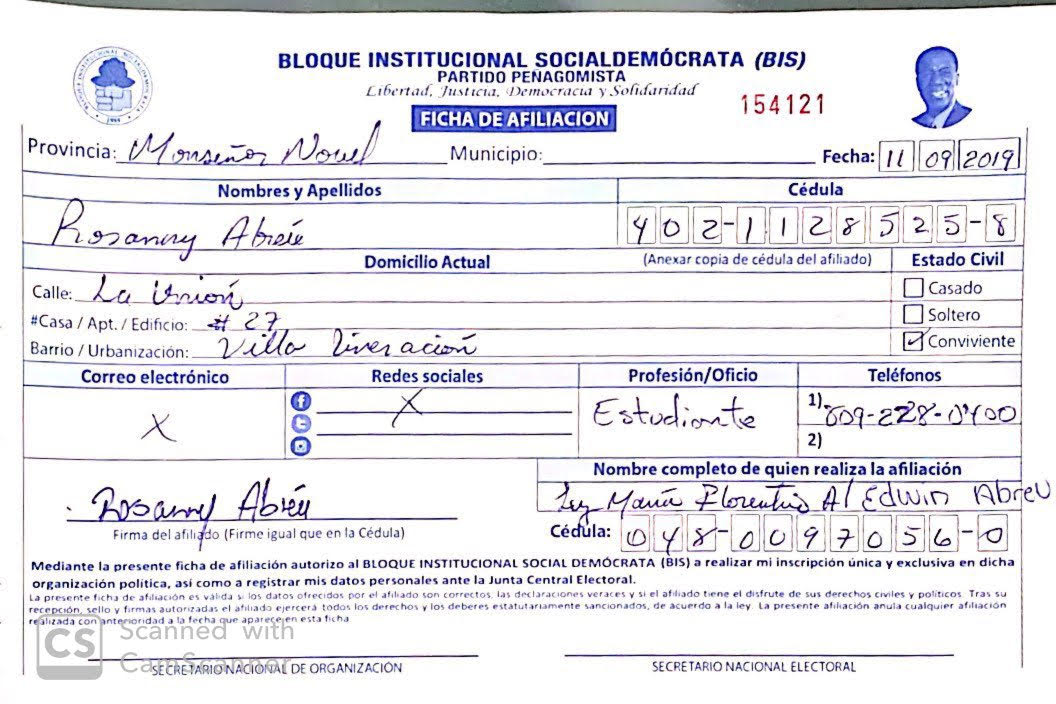 BLOQUE INSTITUCIONAL SOCIALDEMÓCRATA (BIS)
PARTIDO PEÑAGOMISTA
Libertad, Justicia, Democracia y Solidaridad
154121
FICHA DE AFILIACION
Provincia: Monseñor Nouel Municipio: Fecha: 11 09 2019
Nombres y Apellidos Cédula
Rosanny Abreu 402-1128525-8
Domicilio Actual (Anexar copia de cédula del afiliado) Estado Civil
Calle: La Unión Casado
#Casa / Apt. / Edificio: # 27 Soltero
Barrio / Urbanización: Villa Liveración Conviviente
Correo electrónico Redes sociales Profesión/Oficio Teléfonos
X X Estudiante 1) 809-228-0400
2)
Nombre completo de quien realiza la afiliación
Rosanny Abreu María Florentino A/ Edwin Abreu
Firma del afiliado (Firme igual que en la Cédula) Cédula: 048-0097056-0
Mediante la presente ficha de afiliación autorizo al BLOQUE INSTITUCIONAL SOCIAL DEMÓCRATA (BIS) a realizar mi inscripción única y exclusiva en dicha
organización política, así como a registrar mis datos personales ante la Junta Central Electoral.
La presente ficha de afiliación es válida si los datos ofrecidos por el afiliado son correctos, las declaraciones veraces y si el afiliado tiene el disfrute de sus derechos civiles y políticos. Tras su
recepción, sello y firmas autorizadas el afiliado ejercerá todos los derechos y los deberes estatutariamente sancionados, de acuerdo a la ley. La presente afiliación anula cualquier afiliación
realizada con anterioridad a la fecha que aparece en esta ficha
CS Scanned with
CamScanner
SECRETARIO NACIONAL DE ORGANIZACIÓN SECRETARIO NACIONAL ELECTORAL